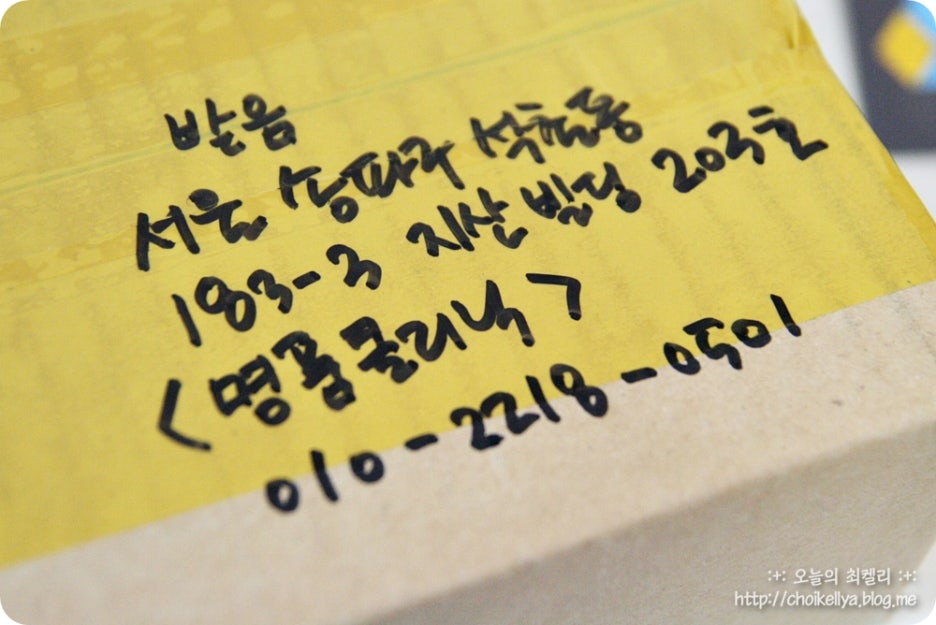 받음
서울 송파구 석촌동
183-3 지산빌딩 203호
<명품클리닉>
010-2218-0501
:+: 오늘의 최켈리 :+:
http://choikellya.blog.me